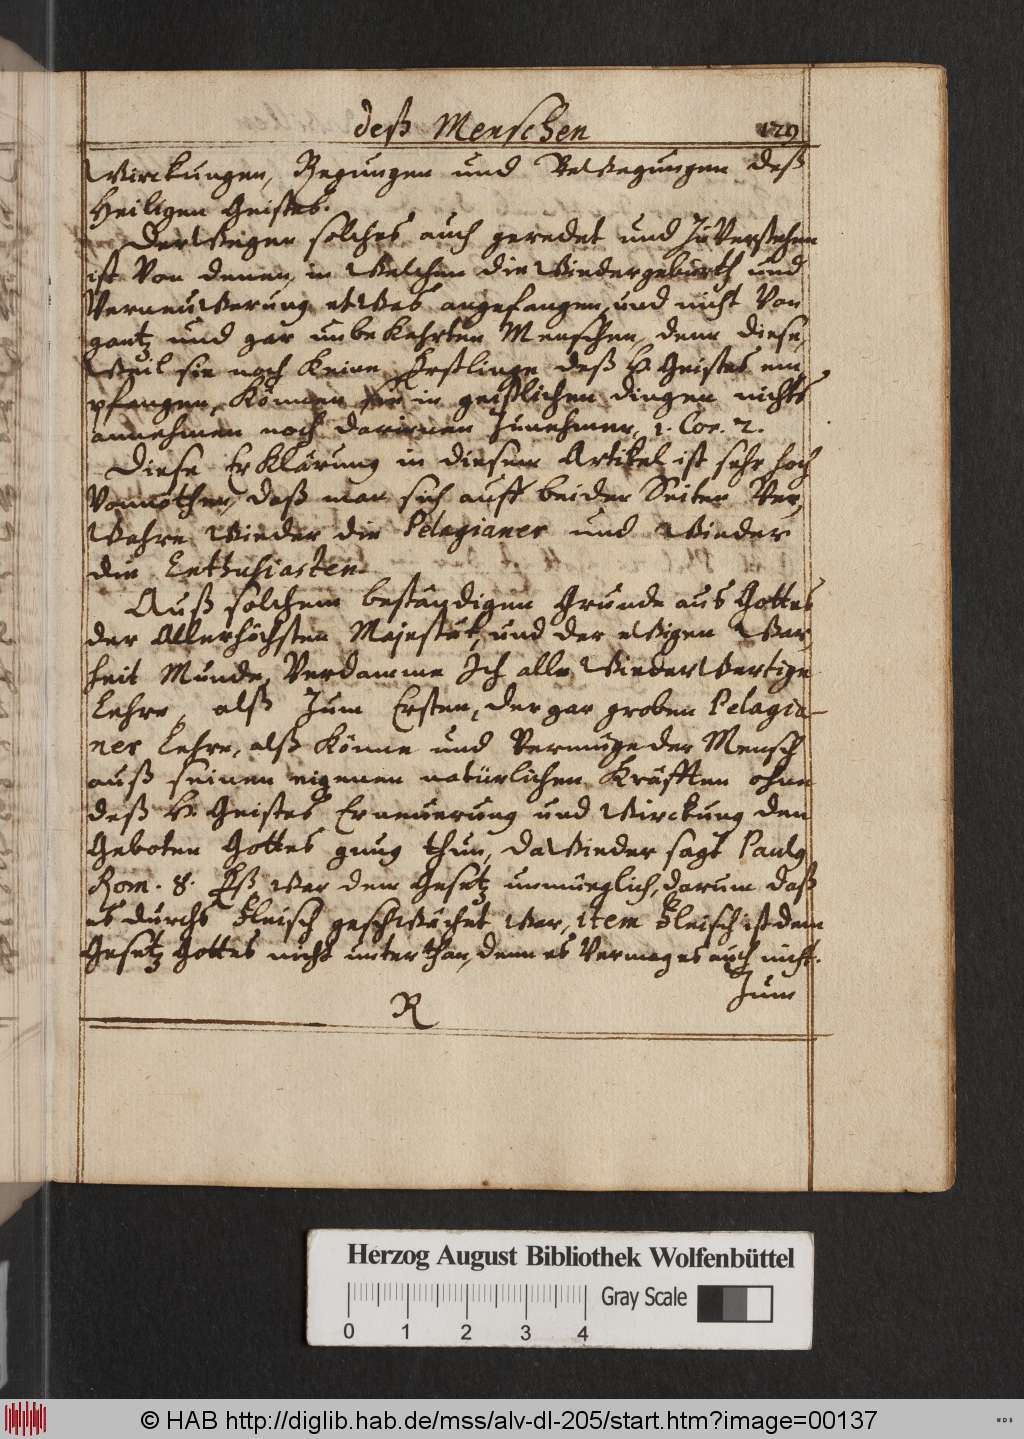 deß Menschen 129
Wirckungen, Regungen und Bewegungen deß
Heiligen Geistes.
Derwegen solches auch geredet und zuverstehen
ist von denen, in welchen die wiedergeburth und
Verneuwerung etwas angefangen, und nicht von
gantz und gar unbekehrten Menschen, denn diese,
weil sie noch keine Erstlinge deß H. Geistes em,
pfangen, können in geistlichen dingen nichts
annehmen noch darinnen zunehmen, 1. Cor. 2.
Diese Erklärung in diesem Artikel ist sehr hoch
vonnöthen, daß man sich auff beiden Seiten ver,
wahre wieder die Pelagianer und wieder
die Enthusiasten.
Auß solchem beständigen Grunde aus Gottes
der Allerhöchsten Majestät, und der ewigen War,
heit Munde, Verdamme Ich alle wiederwertige
Lehre, alß zum Ersten, der gar groben Pelagia-
ner Lehre, alß könne und vermüge der Mensch
auß seinen eigenen natürlichen Kräfften ohne
deß H. Geistes Erneuerung und Wirckung den
Geboten Gottes gnug thun, dawieder sagt Paulus
Rom. 8. Eß war dem Gesetz unmueglich, darum daß
es durchs Fleisch geschwächet war, item Fleisch ist dem
Gesetz Gottes nicht unterthan, denn es vermag es auch nicht.
Zum
R
Herzog August Bibliothek Wolfenbüttel
Gray Scale
0 1 2 3 4
© HAB http://diglib.hab.de/mss/alv-dl-205/start.htm?image=00137